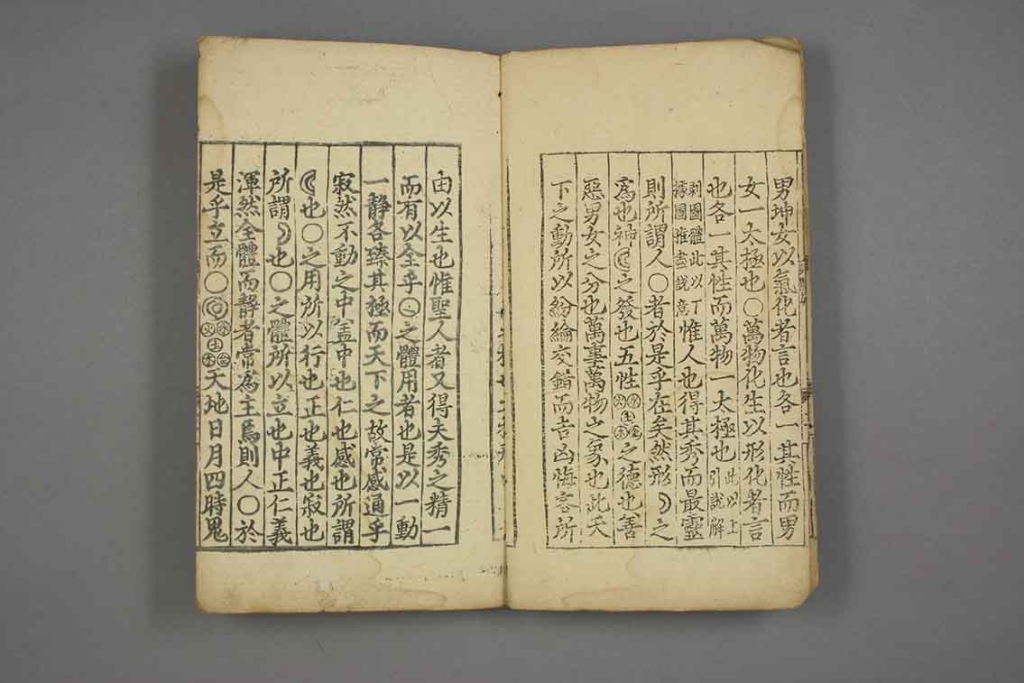 男坤女以氣化者言也各一其性而男
女一太極也〇萬物化生以形化者言
也各一其性而萬物一太極也此以上引說解
剥圖體此以下據圖推盡說意惟人也得其秀而最靈
則所謂人〇者於是乎在矣然形☽之
爲也神☾之發也五性水火土木金之德也善
惡男女之分也萬事萬物之象也此天
下之動所以紛綸交錯而吉凶悔吝所
由以生也惟聖人者又得夫秀之精一
而有以全乎〇之體用者也是以一動
一靜各臻其極而天下之故常感通乎
寂然不動之中盖中也仁也感也所謂
☾也〇之用所以行也正也義也寂也
所謂☽也〇之體所以立也中正仁義
渾然全體而靜者常爲主焉則人〇於
是乎立而〇◎水火土木金天地日月四時鬼